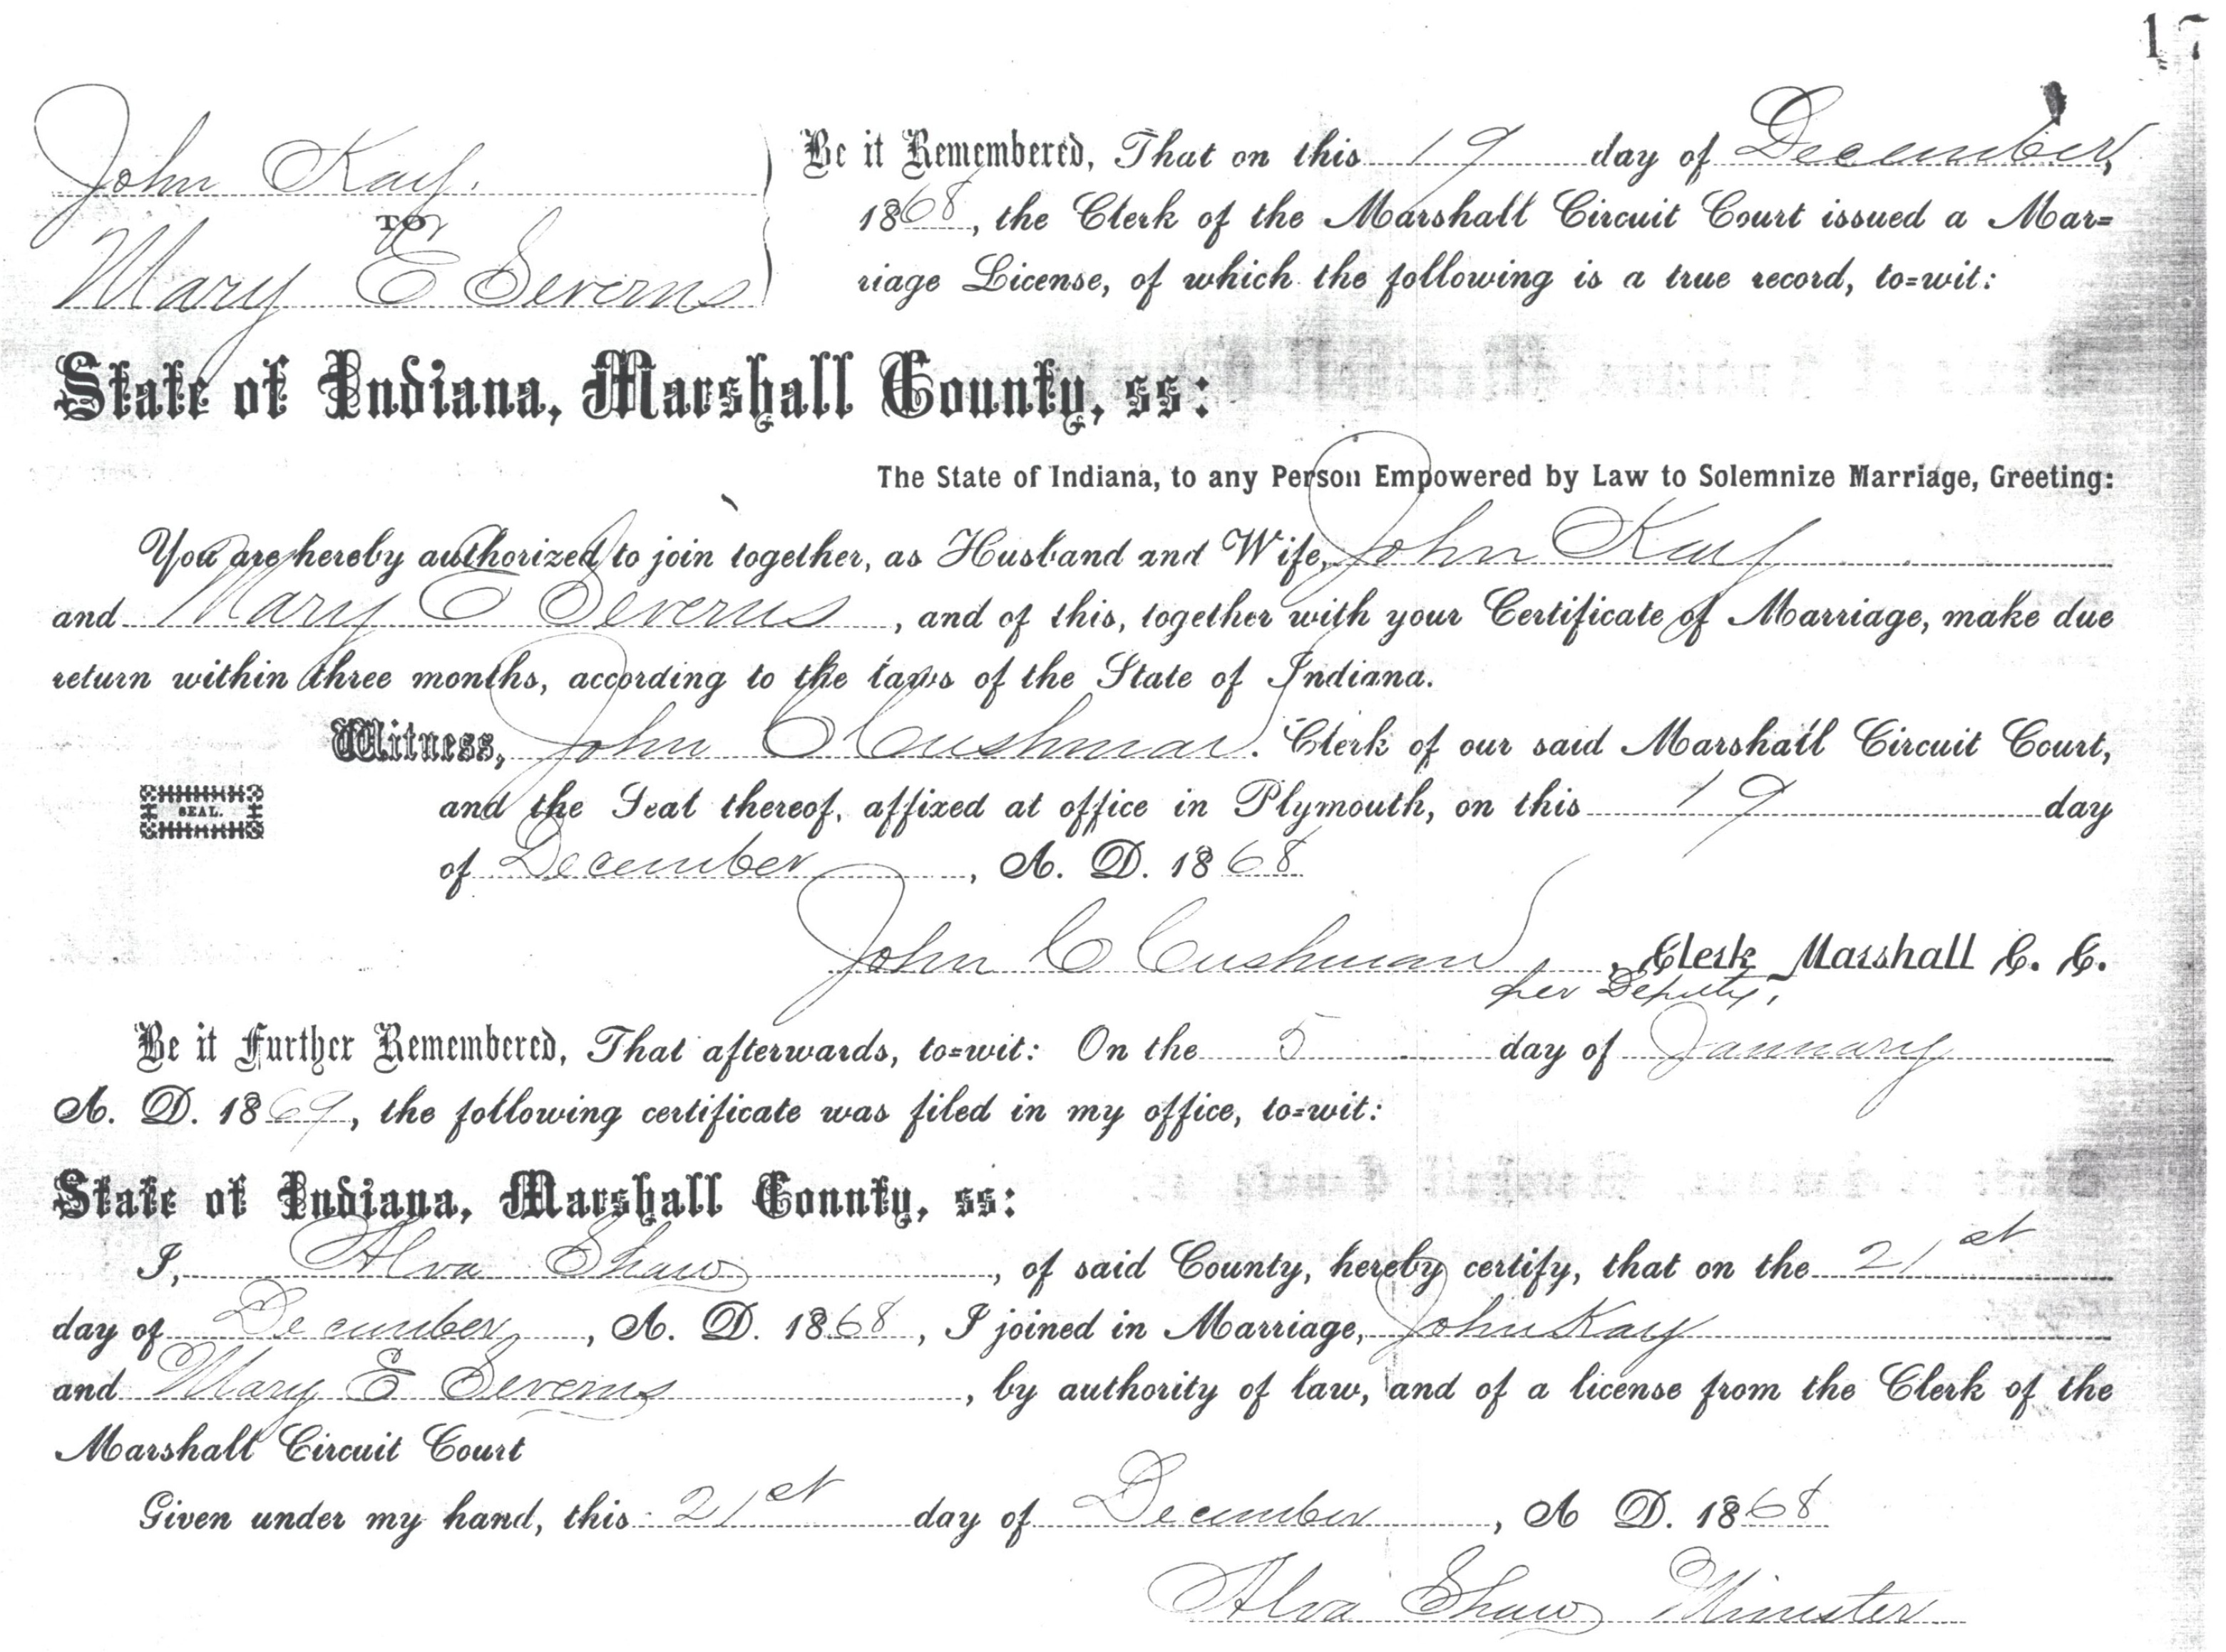 17
John Kay.
TO
Mary E Severns
Be it Remembered, That on this 19 day of December,
1868, the Clerk of the Marshall Circuit Court issued a Mar=
riage License, of which the following is a true record, to=wit:
State of Indiana, Marshall County, ss:
The State of Indiana, to any Person Empowered by Law to Solemnize Marriage, Greeting:
You are hereby authorized to join together, as Husband and Wife, John Kay
and Mary E Severns, and of this, together with your Certificate of Marriage, make due
return within three months, according to the laws of the State of Indiana.
Witness, John C Cushman. Clerk of our said Marshall Circuit Court,
SEAL.
and the Seal thereof, affixed at office in Plymouth, on this 19 day
of December, A. D. 1868
John C Cushman, Clerk Marshall C. C.
per Deputy,
Be it Further Remembered, That afterwards, to=wit: On the 5 day of January
A. D. 1869, the following certificate was filed in my office, to=wit:
State of Indiana, Marshall County, ss:
I, Alva Shaw, of said County, hereby certify, that on the 21st
day of December, A. D. 1868, I joined in Marriage, John Kay
and Mary E Severns, by authority of law, and of a license from the Clerk of the
Marshall Circuit Court
Given under my hand, this 21st day of December, A D. 1868
Alva Shaw Minister